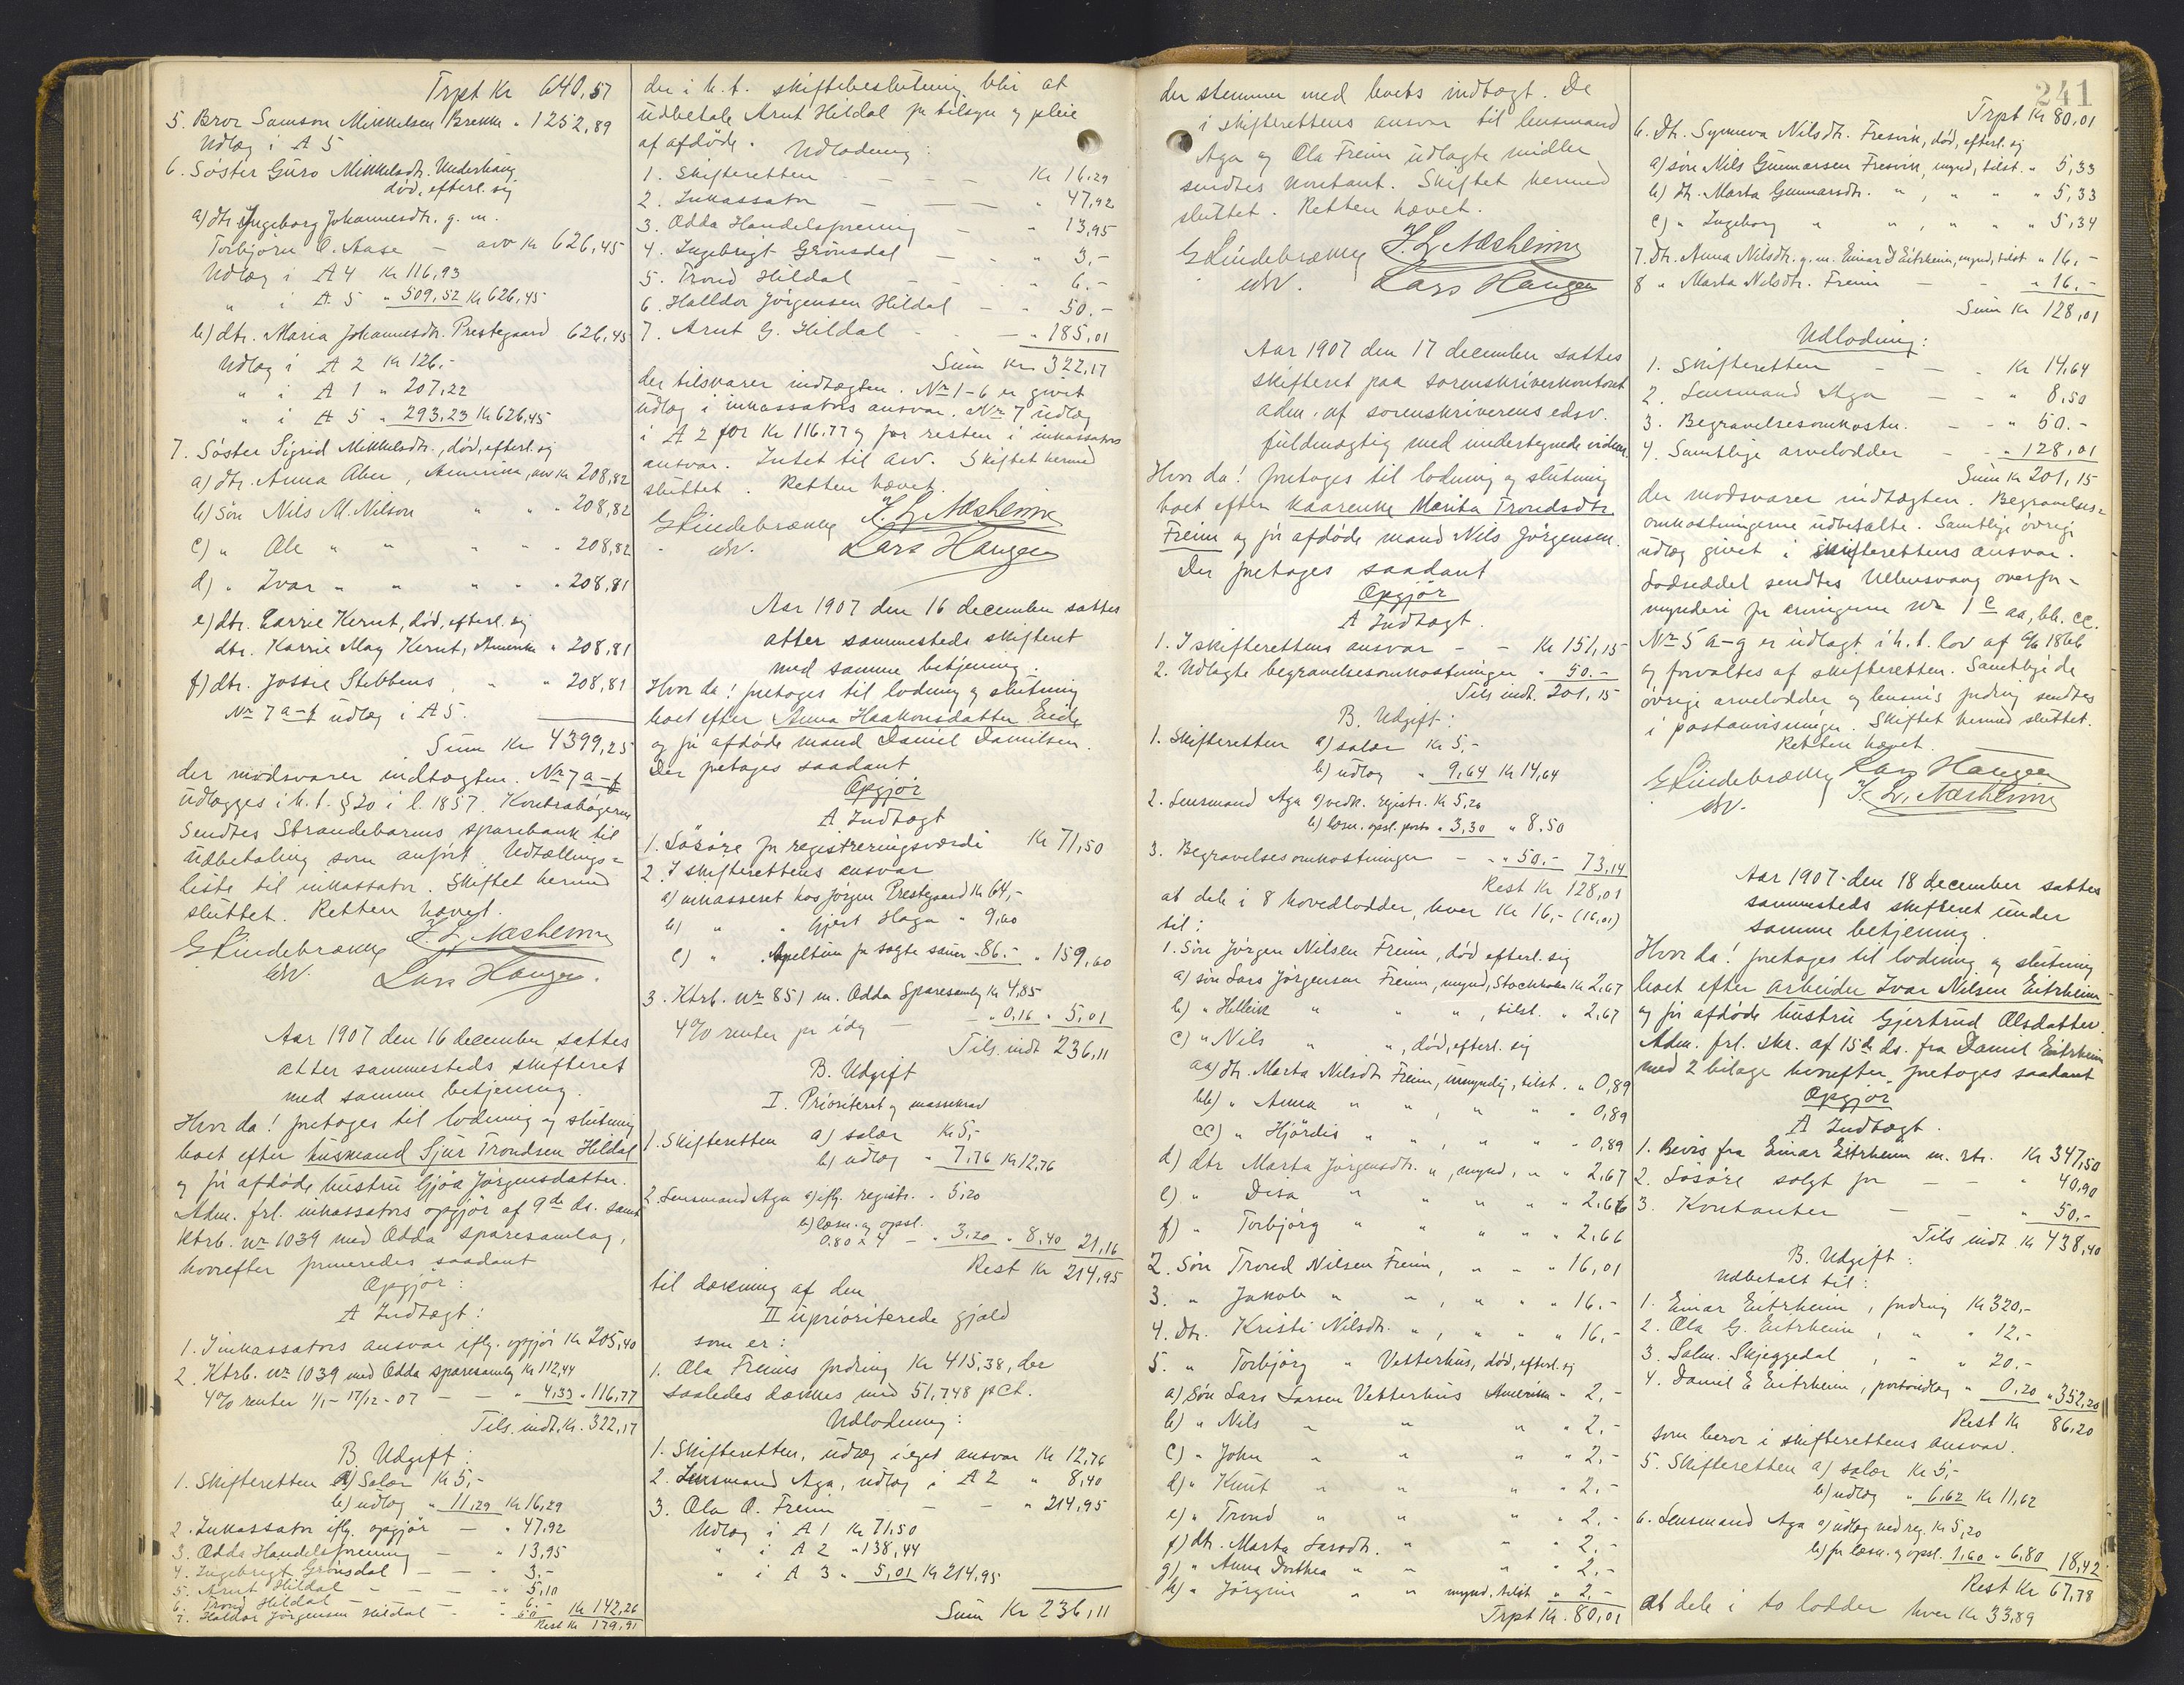 Trpt Kr 640,57
5. Bror Samson Mikkelsen Brekke " 1252,89
Udlæg i A 5
6. Søster Guro Mikkelsdtr. Underhaug
død, efterl. sig
a) dtr. Ingeborg Johannesdtr. g. m.
Torbjörn O. Aase – arv kr 626,45
Udlæg i A 4 kr 116,93
" i A 5 " 509,52 kr 626,45
b) dtr. Maria Johannesdtr. Prestegaard 626,45
Udlæg i A 2 kr 126,-
" i A 1 " 207,22
" i A 5 " 293,23 kr 626,45
7. Søster Sigrid Mikkelsdtr., død, efterl. sig
a) dtr. Anna Aker, Amerika, arv kr 208,82
b) Søn Nils M. Nilson " " " 208,82
c) " Ole " " " " " 208,82
d) " Ivar " " " " " 208,81
e) dtr. Carrie Kernt, død, efterl. sig
dtr. Karrie May Kernt, Amerika " 208,81
f) dtr. Jossie Stebbens, " " 208,81
Nr 7 a-f udlæg i A 5.
Sum Kr 4399,25
der modsvarer indtægten. Nr 7 a-f
udlægges i h. t. § 20 i l. 1857. Kontrabøgerne
sendtes Strandebarms sparebank til
udbetaling som anført. Udtællings-
liste til inkassator. Skiftet hermed
sluttet. Retten hævet.
G Lindebrække J. L. Næsheim
edsv. Lars Haugen.
Aar 1907 den 16 december sattes
atter sammesteds skifteret
med samme betjening.
Hvor da! foretoges til lodning og slutning
boet efter husmand Sjur Trondsen Hildal
og før afdøde hustru Gjøa Jørgensdatter.
Adm. frl. inkassators opgjør af 9de ds. samt
Ktrb. nr 1039 med Odda sparesamlag,
hvorefter formeredes saadant
Opgjør:
A Indtægt:
1. I inkassators ansvar iflg. opgjør kr 205,40
2. Ktrb. nr 1039 med Odda sparesamlag kr 112,44
4% renter 1/1 - 17/12 - 07 – " 4,33 " 116,77
Tils. indt. Kr. 322,17
B. Udgift:
1. Skifteretten a) Salær Kr 5,-
b) udlæg " 11,29 kr 16,29
2. Inkassator iflg. opgjør – " 47,92
3. Odda Handelsforening – " 13,95
4. Ingebrigt Grønsdal – " 3.-
5. Arnt Hildal – – " 5,10
6. Trond Hildal – – " 6.-
7. Haldor Jørgensen Hildal – " 50 kr 142,26
Rest kr 179,91
der i h. t. skiftebeslutning blir at
udbetale Arnt Hildal for tilsyn og pleie
af afdøde. Udlodning:
1. Skifteretten – – – Kr 16,29
2. Inkassator – – – " 47,92
3. Odda Handelsforening – " 13,95
4. Ingebrigt Grønsdal – – " 3,-
5. Trond Hildal – – " 6.-
6. Halldor Jørgensen Hildal – " 50.-
7. Arnt G. Hildal – – " 185,01
Sum Kr 322,17
der tilsvarer indtægten. Nr 1-6 er givet
udlæg i inkassators ansvar. Nr 7 udlæg
i A 2 for kr 116.77 og for resten i inkassators
ansvar. Intet til arv. Skiftet hermed
sluttet. Retten hævet.
G Lindebrække J. L. Næsheim
edsv. Lars Haugen
Aar 1907 den 16 december sattes
atter sammesteds skifteret
med samme betjening.
Hvor da! foretoges til lodning og slutning
boet efter Anna Haakonsdatter Eide
og før afdøde mand Daniel Danielsen.
Der foretoges saadant
Opgjør
A Indtægt
1. Løsøre for registreringsværdi Kr 71,50
2. I skifterettens ansvar
a) inkasseret hos Jørgen Prestegaard kr 64,-
b) " " Gjert Haga " 9,60
c) " Apeltun for solgte sauer " 86.- " 159,60
3. Ktrb. nr 851 m. Odda Sparesamlag kr 4,85
4% renter pr idag – " 0,16 " 5,01
Tils. indt 236,11
B. Udgift
I. Prioriteret og massekrav
1. Skifteretten a) salær Kr 5,-
b) udlæg " 7,76 kr 12,76
2. Lensmand Aga a) iflg. registr. " 5,20
b) læsn. og opsl.
0.80 x 4 – " 3,20 " 8,40 21,16
Rest kr 214,95
til dækning af den
II uprioriterede gjæld
som er:
1. Ola Freims fordring Kr 415,38, der
saaledes dækkes med 51,748 pct.
Udlodning:
1. Skifteretten, udlæg i eget ansvar kr 12,76
2. Lensmand Aga, udlæg i A 2 " 8,40
3. Ola O. Freim – – " 214,95
Udlæg i A 1 kr 71,50
" i A 2 " 138,44
" i A 3 " 5,01 kr 214,95
Sum Kr 236,11
der stemmer med boets indtægt. De
i skifterettens ansvar til lensmand
Aga og Ola Freim udlagte midler
sendtes kontant. Skiftet hermed
sluttet. Retten hævet.
G Lindebrække J. L. Næsheim
edsv. Lars Haugen
Aar 1907 den 17 december sattes
skifteret paa sorenskriverkontoret
adm. af sorenskriverens edsv.
fuldmægtig med undertegnede vidner.
Hvor da! foretoges til lodning og slutning
boet efter kaarenke Marita Trondsdtr
Freim og før afdøde mand Nils Jørgensen.
Der foretoges saadant
Opgjør
A Indtægt.
1. I skifterettens ansvar – – Kr 151,15
2. Udlagte begravelsesomkostninger " 50.-
Tils indt. 201,15
B. Udgift:
1. Skifteretten a) salær kr 5,-
b) udlæg " 9,64 kr 14,64
2. Lensmand Aga a) vedk. registr. kr 5,20
b) læsn. opsl. porto " 3,30 " 8.50
3. Begravelsesomkostninger – " " 50.- 73,14
Rest kr 128,01
at dele i 8 hovedlodder, hver kr 16,- (16,01)
til:
1. Søn Jørgen Nilsen Freim, død efterl. sig
a) søn Lars Jørgensen Freim, mynd, Stockholm kr 2,67
b) " Helleik " " ", tilst. " 2,67
c) " Nils " ", død, efterl. sig
aa) dtr. Marta Nilsdtr. Freim, umyndig, tilst. " 0,89
bb) " Anna " ", " " " 0,89
cc) " Hjørdis " ", " " " 0,89
d) dtr Marta Jørgensdtr. ", mynd, " " 2,67
e) " Disa " " " " " 2,66
f) " Torbjörg " " " " " 2,66
2. Søn Trond Nilsen Freim, " " " 16,01
3. " Jakob " ", " " " 16.-
4. Dtr. Kristi Nilsdtr. ", " " " 16,-
5. " Torbjörg " Vetterhus, død, efterl. sig
a) Søn Lars Larsen Vetterhus Amerika " 2,-
b) " Nils " " " " 2.-
c) " John " " " " 2,-
d) " Knut " " " " 2.-
e) " Trond " " " " 2.-
f) dtr. Marta Larsdtr. " " " 2.-
g) " Anna Dorthea " " " " 2.-
h) " Jørgine " " mynd. tilst " 2.-
Trpt kr. 80,01
241
Trpt kr 80,01
6. Dtr. Synneva Nilsdtr. Fresvik, død, efterl. sig
a) søn Nils Gunnarsen Fresvik, mynd, tilst. " 5,33
b) dtr. Marta Gunnarsdtr. ", " " " 5,33
c) " Ingeborg " ", " " " 5,34
7. Dtr. Anna Nilsdtr. g. m. Einar D Eitrheim, mynd, tilst " 16,-
8 " Marta Nilsdtr. Freim – – " 16.-
Sum Kr 128,01
Udlodning:
1. Skifteretten – – " Kr 14,64
2. Lensmand Aga – – " 8,50
3. Begravelsesomkostn. – – " 50.-
4. Samtlige arvelodder – – " 128,01
Sum kr 201,15
der modsvarer indtægten. Begravelses-
omkostningerne udbetalte. Samtlige øvrige
udlæg givet i skifterettens ansvar.
Lodseddel sendtes Ullensvang overfor-
mynderi for arvingerne nr 1 c aa, bb, cc.
Nr 5 a-g er udlagt i h. t. lov af 1866
og forvaltes af skifteretten. Samtlige de
øvrige arvelodder og lensm's fordring sendtes
i postanvisninger. Skiftet hermed sluttet.
Retten hævet.
G Lindebrække Lars Haugen
edsv. J. L. Næsheim
Aar 1907 den 18 december sattes
sammesteds skifteret under
samme betjening.
Hvor da! foretoges til lodning og slutning
boet efter arbeider Ivar Nilsen Eitrheim
og før afdøde hustru Gjertrud Olsdatter.
Adm. frl. skr. af 15de ds. fra Daniel Eitrheim
med 2 bilage hvorefter foretoges saadant
Opgjør
A Indtægt.
1. Bevis fra Einar Eitrheim m. rtr. Kr 347,50
2. Løsøre solgt for – – " 40,90
3. Kontanter – – " 50.-
Tils indt. kr 438,40
B. Udgift:
Udbetalt til:
1. Einar Eitrheim, fordring Kr 320,-
2. Ola G. Eitrheim, " " 12.-
3. Salm. Skjeggedal, " " 20.-
4. Daniel E Eitrheim, portoudlæg " 0,20 " 352,20
Rest kr 86,20
som beror i skifterettens ansvar.
5. Skifteretten a) salær kr 5,-
b) udlæg " 6,62 kr 11,62
6. Lensmand Aga a) udlæg ved reg. kr 5,20
b) for læsn. og opsl. 1,60 " 6,80 18,42
Rest kr 67,78
at dele i to lodder hver kr 33,89